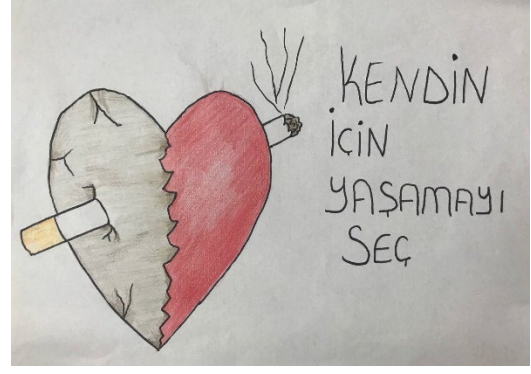 KENDİN
İÇİN
YAŞAMAYI
SEÇ